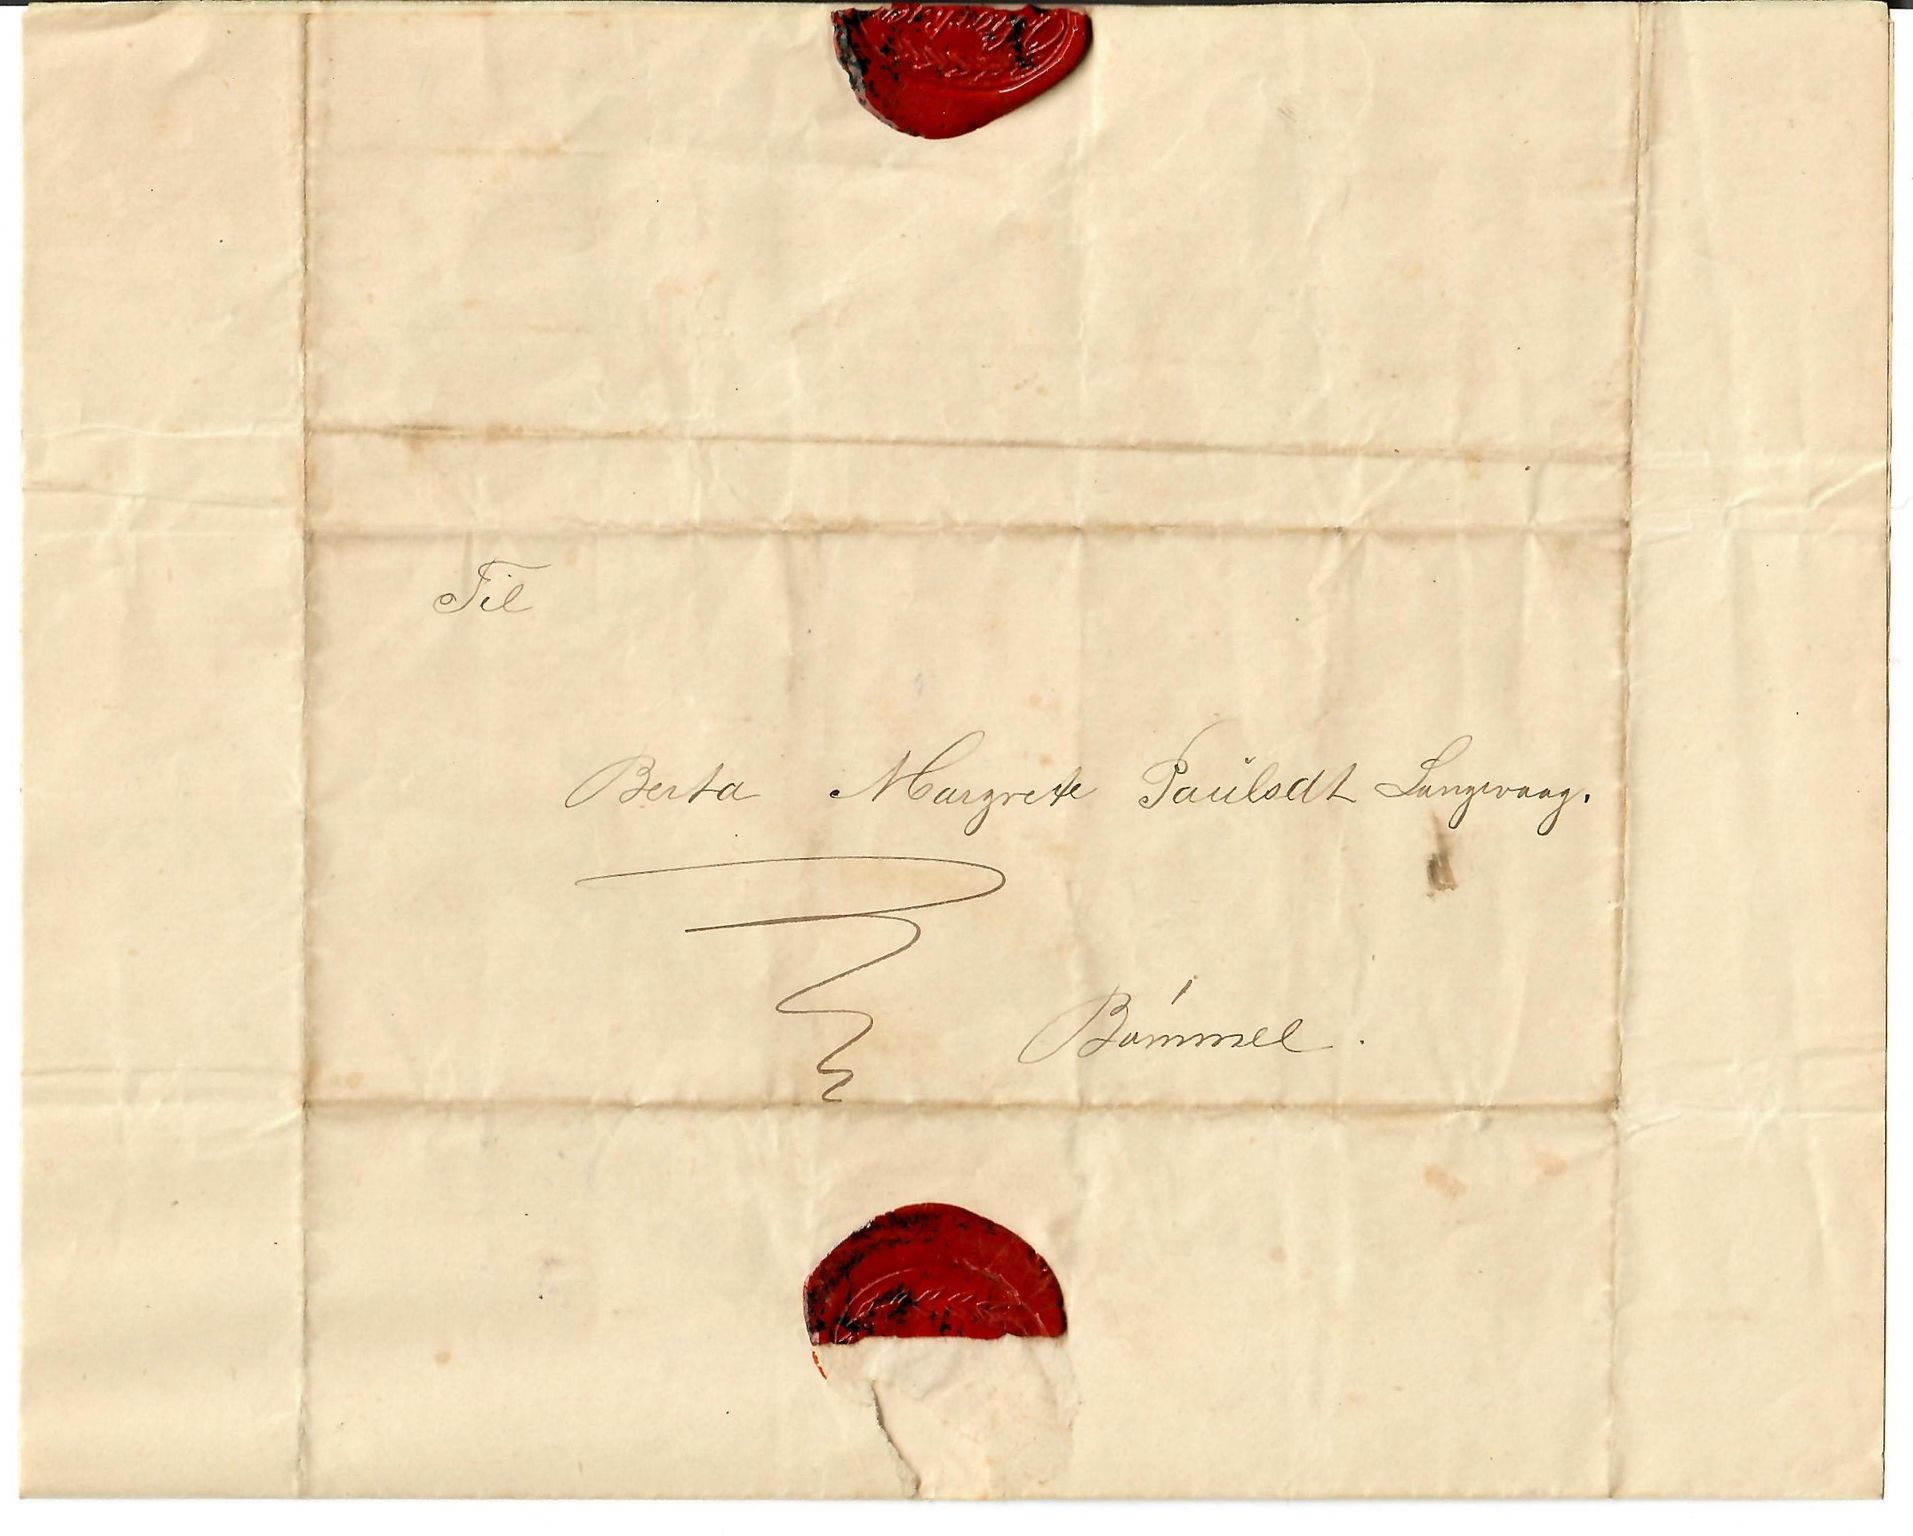 Til
Berta Margrete Paŭlsdt Langevaag.
Bömmel.